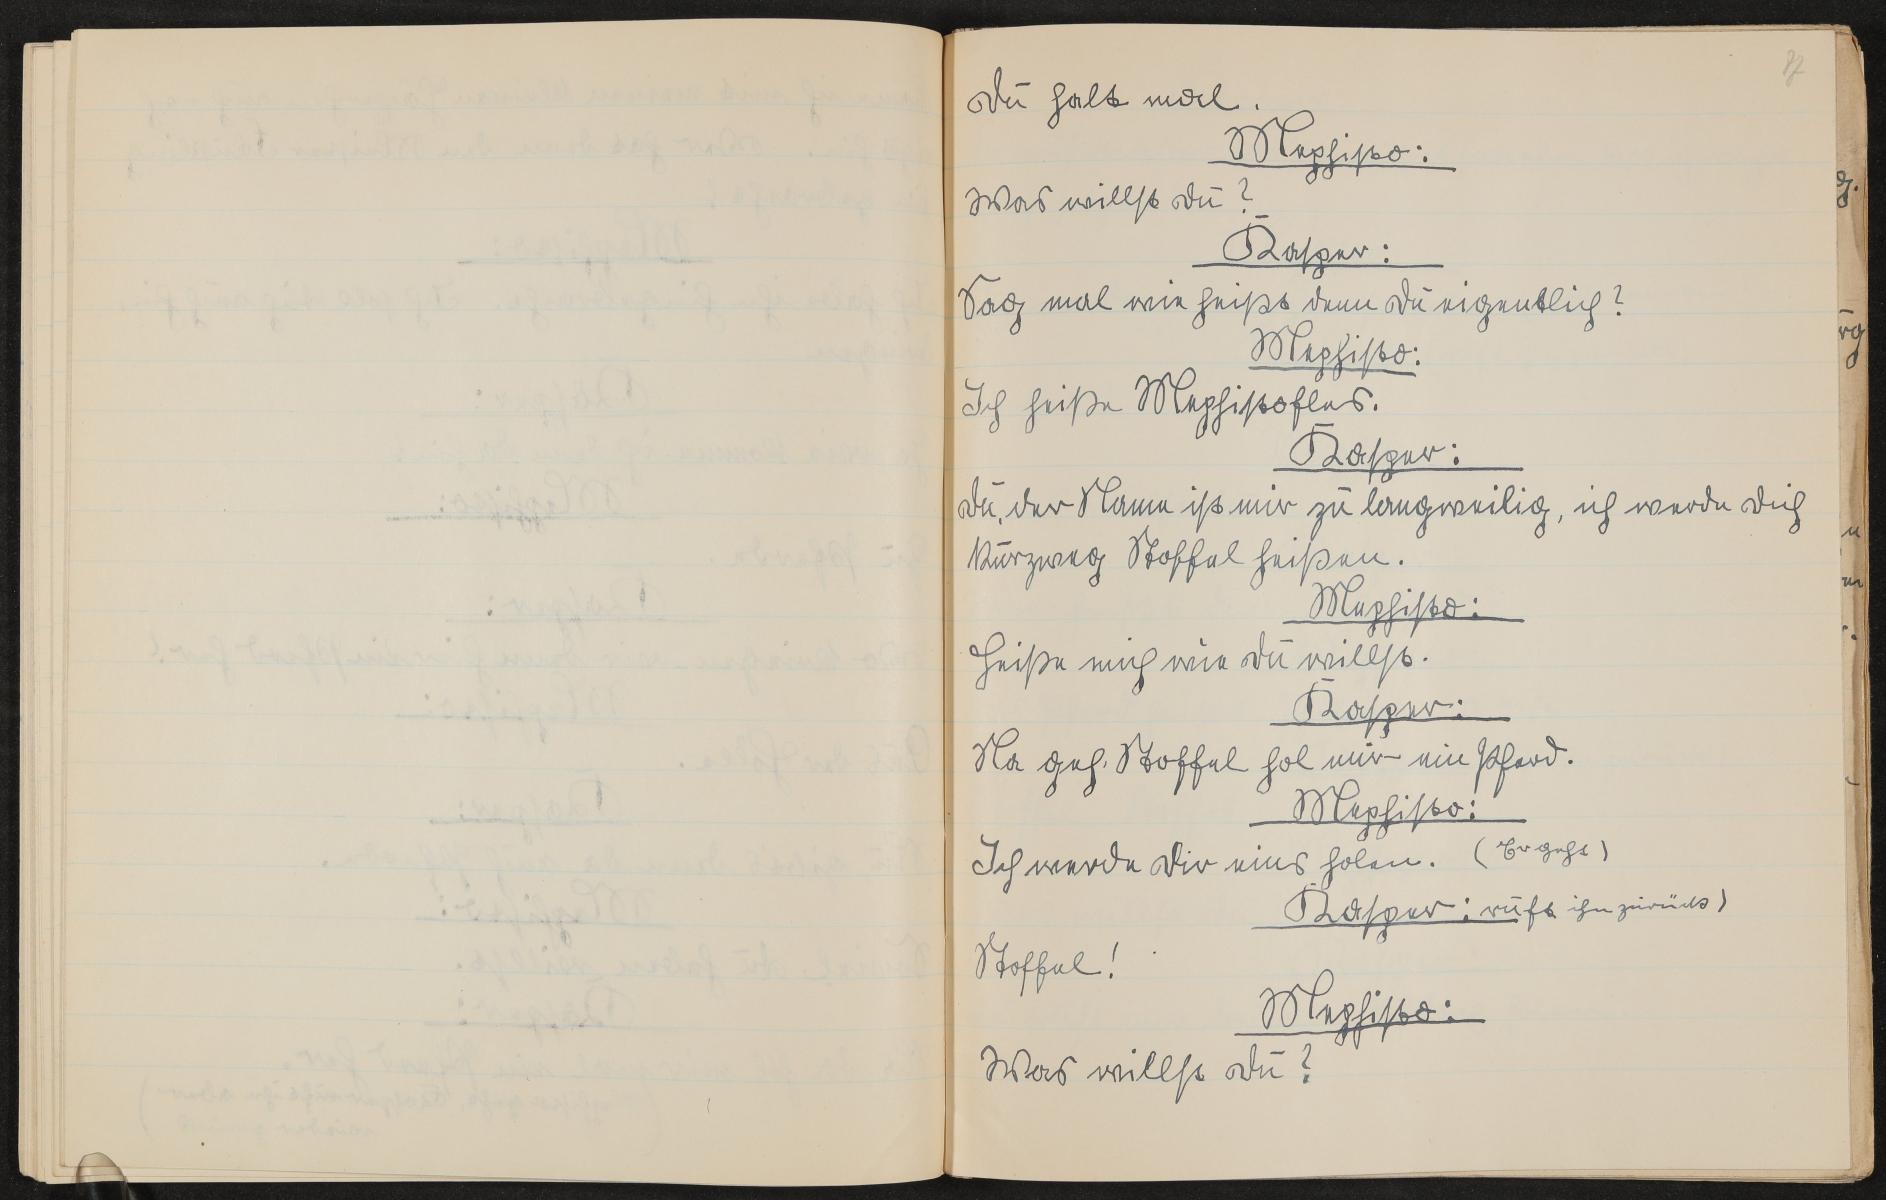 Du halt mal.
Mephisto:
Was willst Du?
Kasper:
Sag mal wie heißt denn Du eigentlich?
Mephisto:
Ich heiße Mephistofles.
Kasper:
Du, der Name ist mir zu langweilig, ich werde Dich
kurzweg Stoffel heißen.
Mephisto:
Heiße mich wie Du willst.
Kasper:
Na geh, Stoffel hol mir ein Pferd.
Mephisto:
Ich werde Dir eins holen. (Er geht)
Kasper: ruft ihn zurück)
Stoffel!
Mephisto:
Was willst Du?